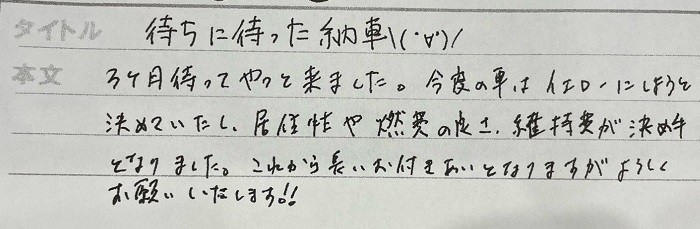 タイトル 待ちに待った納車\(˙∀˙)/
本文 3ヶ月待ってやっと来ました。今度の車はイエローにしようと
決めていたし、居住性や燃費の良さ、維持費が決め手
となりました。これから長いお付きあいとなりますがよろしく
お願いいたします!!